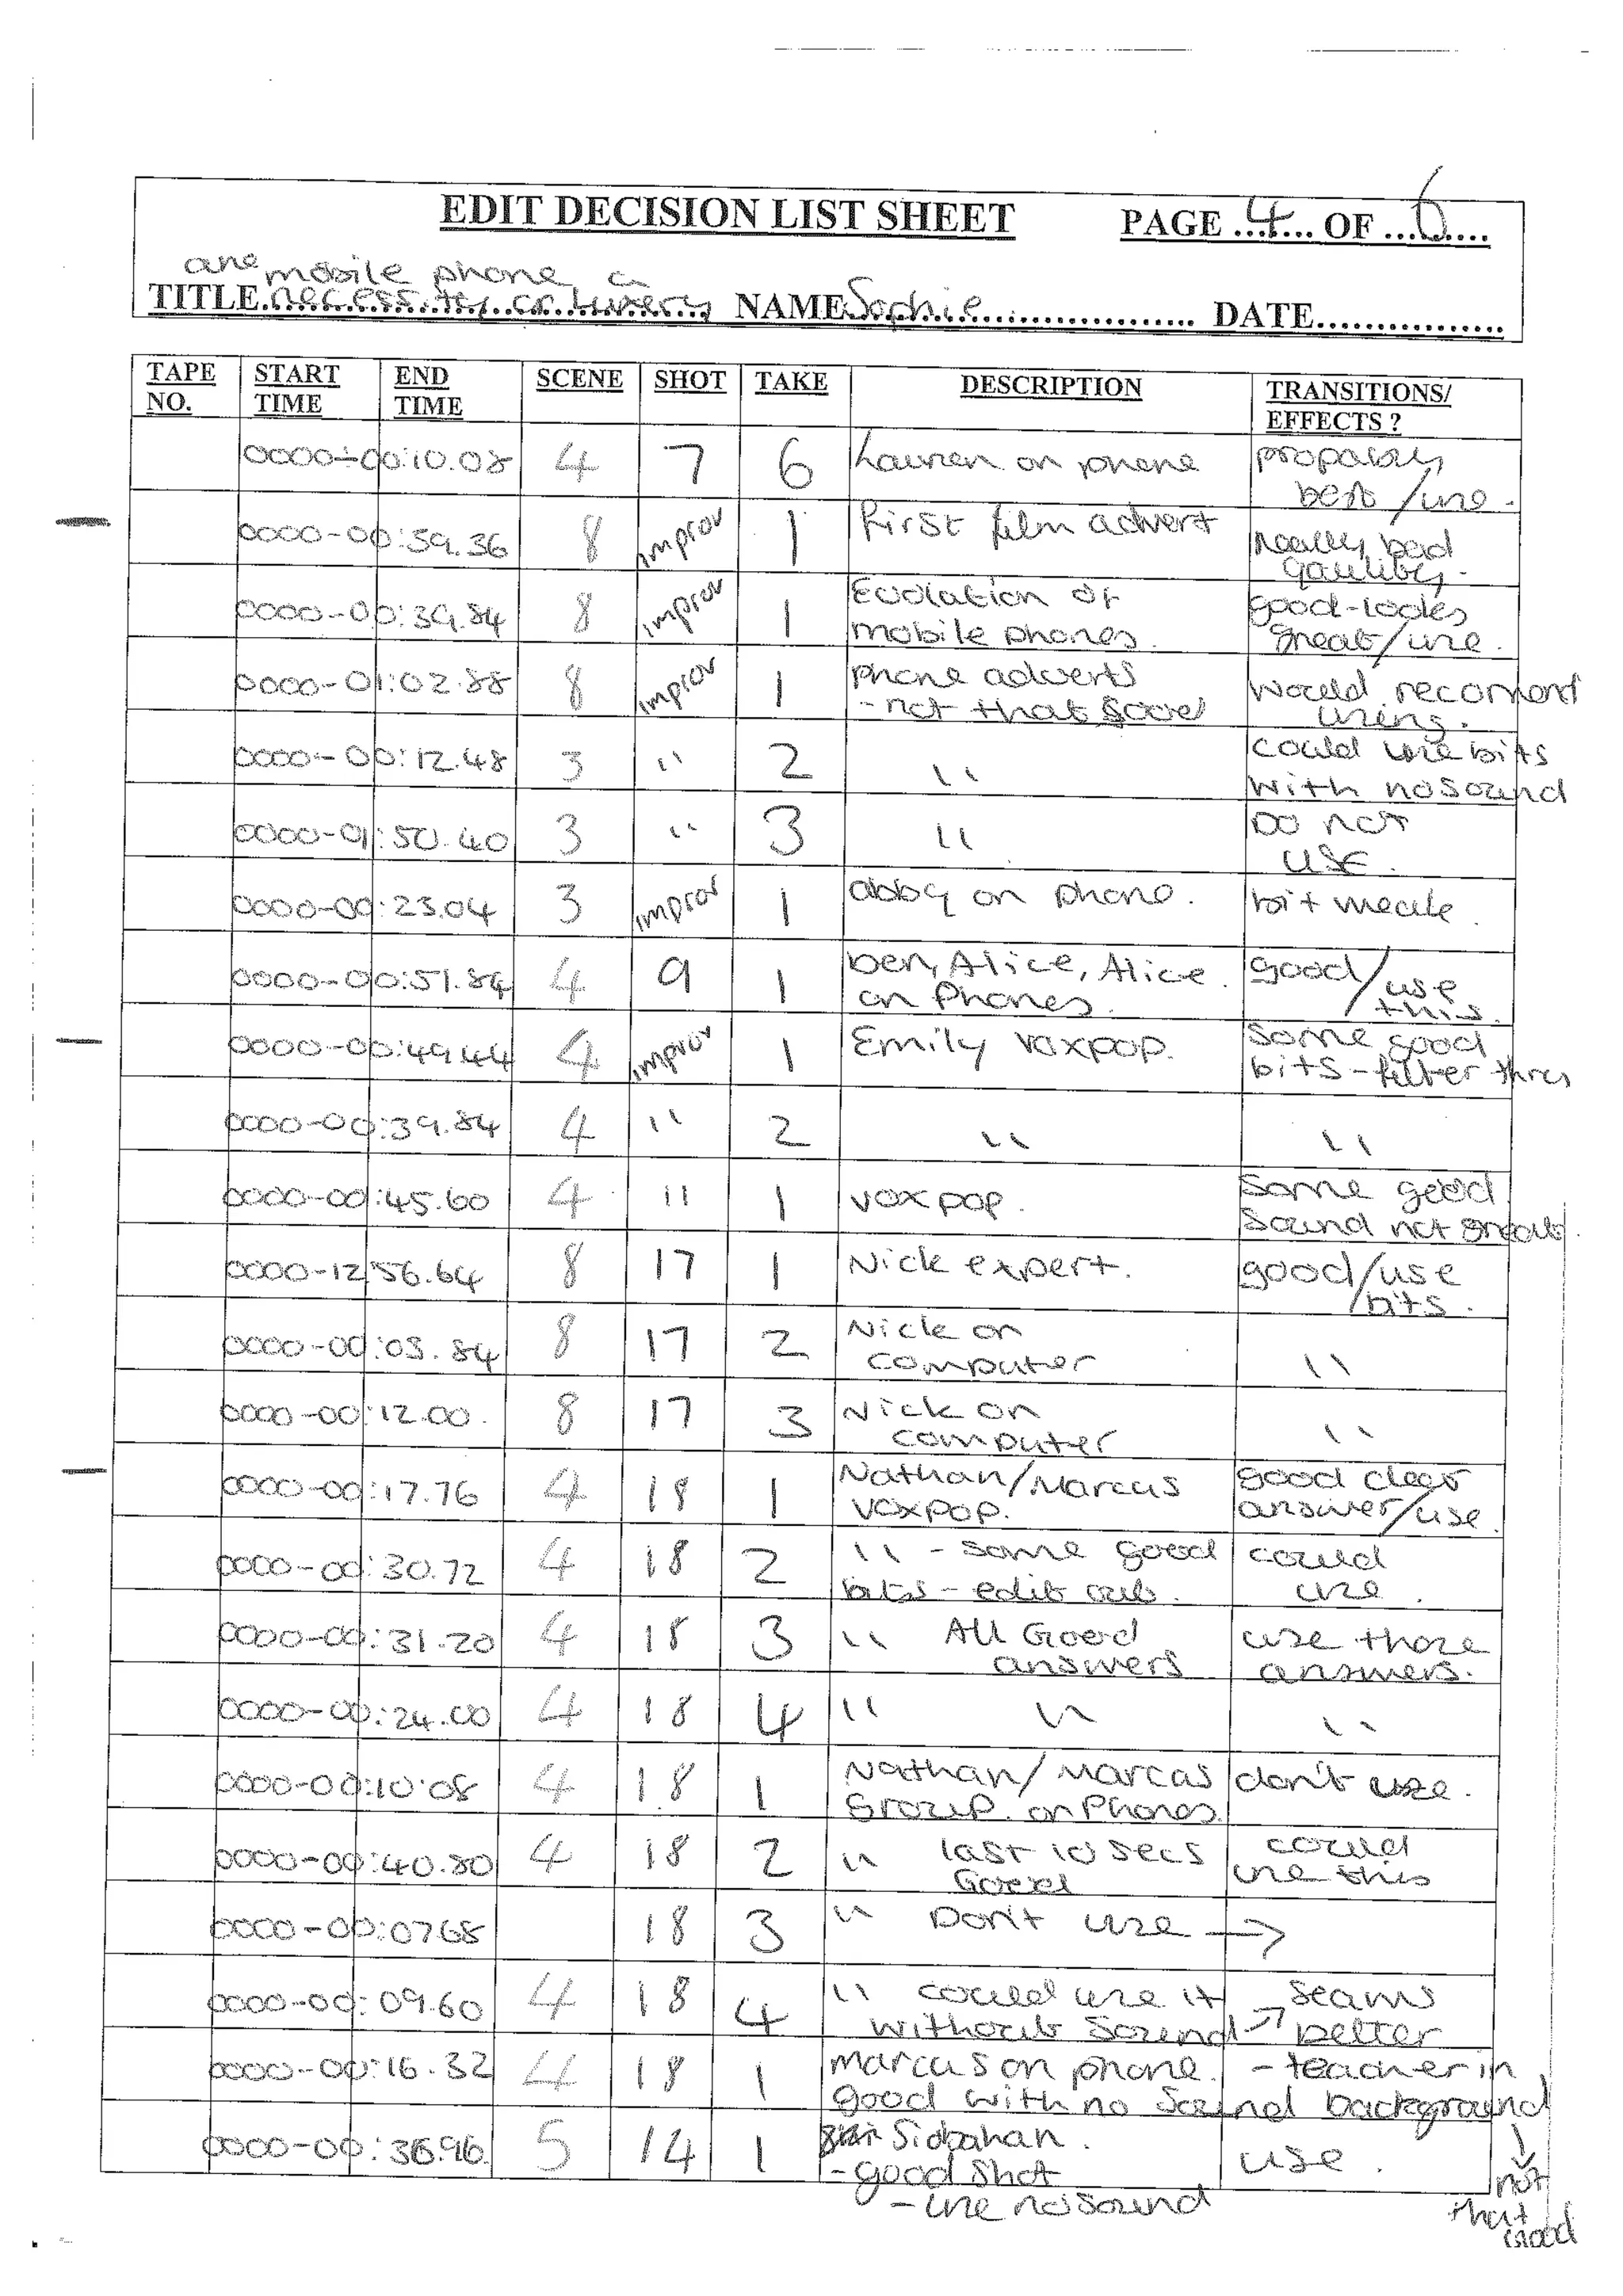 EDIT DECISION LIST SHEET PAGE ..4.. OF ..6..
are mobile phone a
TITLE necessity or Luxery NAME Sophie DATE
TAPE NO. START TIME END TIME SCENE SHOT TAKE DESCRIPTION TRANSITIONS/ EFFECTS ?
0000-00:10.08 4 7 6 Lauren on phone propably best/use.
0000-00:59.36 8 improv 1 First film advert really bad quality.
0000-00:39.84 8 improv 1 Evolation of mobile phones. good-looks great/use.
0000-01:02.88 8 improv 1 phone adverts - not that good would recomend using.
0000-00:12.48 3 " 2 " could use bits with no sound
0000-01:50.40 3 " 3 " Do not use.
0000-00:23.04 3 improv 1 abby on phone. bit
0000-00:51.84 4 9 1 ben, Alice, Alice. on Phones. good/use this.
0000-00:49.44 4 improv 1 Emily voxpop. Some good bits-filter thru
0000-00:39.84 4 " 2 " "
0000-00:45.60 4 " 1 voxpop. Some good Sound not great.
0000-12:56.64 8 17 1 Nick expert. good/use bits.
0000-00:03.84 8 17 2 Nick on computer "
0000-00:12.00. 8 17 3 Nick on computer "
0000-00:17.76 4 18 1 Nathan/Marcus voxpop. good clear answer/use.
0000-00:30.72 4 18 2 " - some good bits - edit out. could use.
0000-00:31.20 4 18 3 " All Good answers use those answers.
0000-00:24.00 4 18 4 " " "
0000-00:10.08 4 18 1 Nathan/Marcus Group. on Phones. don't use.
0000-00:40.80 4 18 2 " last 10 secs Good could use this
0000-00:07.68 18 3 " Don't use →
0000-00:09.60 4 18 4 " could use it without Sound → seams better
0000-00:16.32 4 18 1 marcus on phone. good with no Sound - teacher in background
↓ not that Good
0000-00:36.96. 5 14 1 Siobahan. - good shot use.
- use no sound